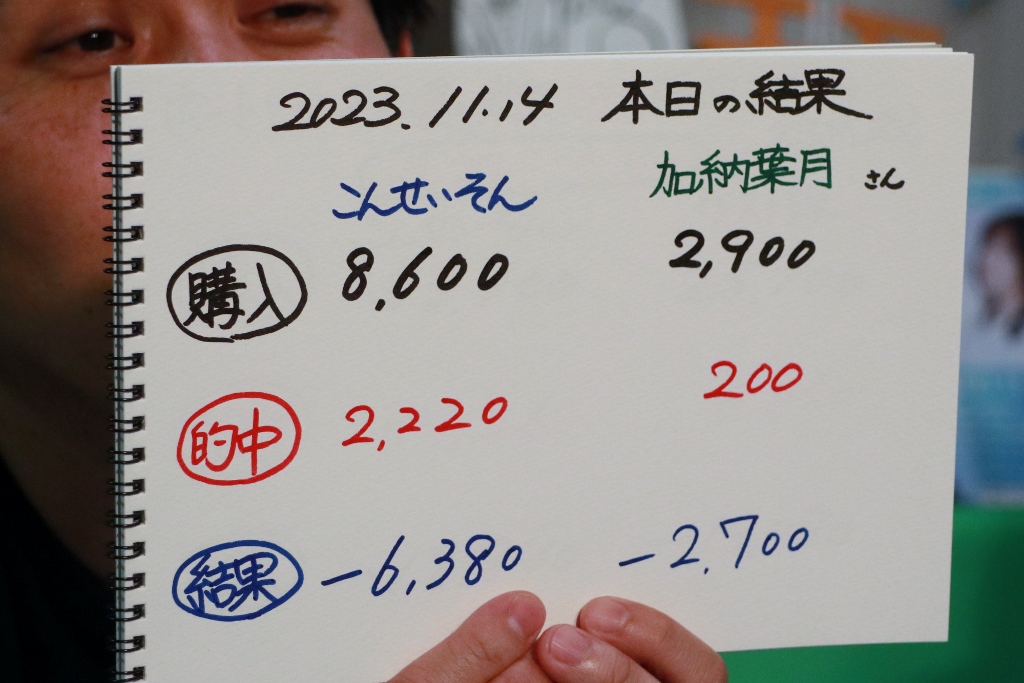 2023.11.14 本日の結果
こんせいそん 加納葉月 さん
購入 8,600 2,900
的中 2,220 200
結果 -6,380 -2,700